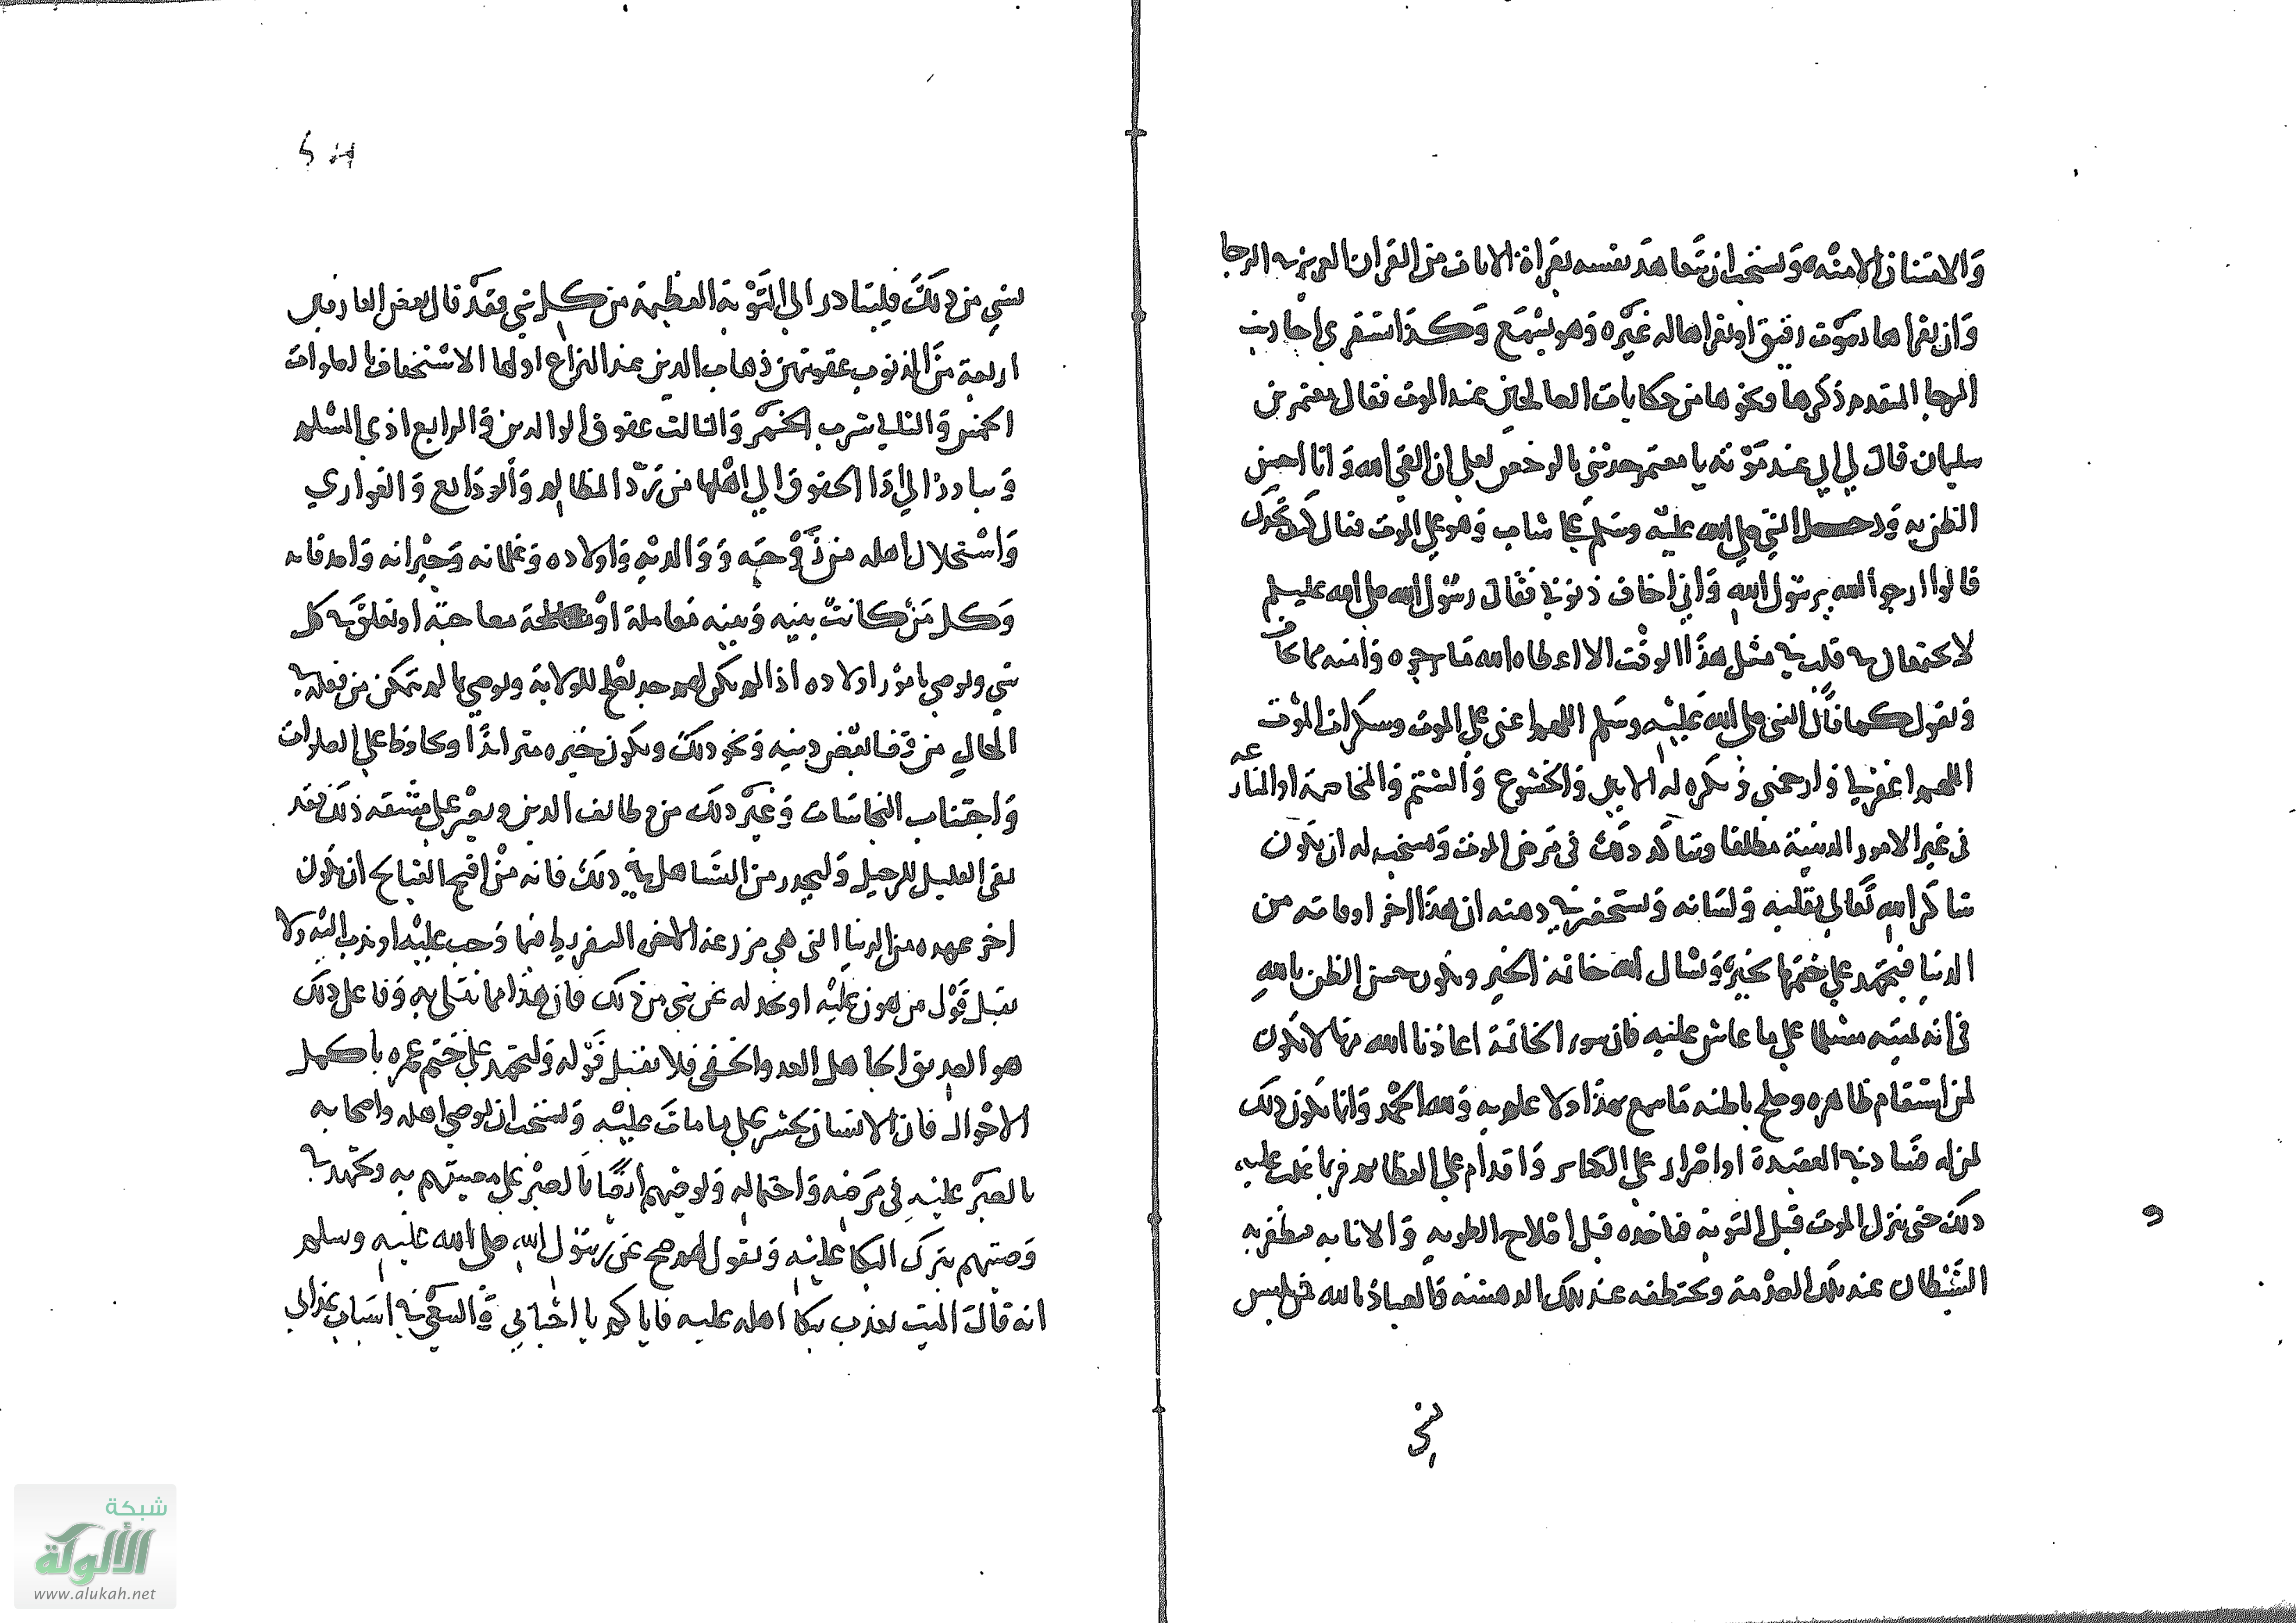 والامتنان لامته ويستحب ان يتعاهد نفسه بقراة الايات من القران العزيز في الرجا
وان يقراها بصوت رقيق او يقراها له غيره وهو يستمع وكذا استقري احاديث
الرجا المتقدم ذكرها ونحوها من حكايات الصالحين عند الموت فقال معتمر بن
سليمان قال لي ابي عند موته يا معتمر حدثني بالرخص لعلي ان القى الله وانا احسن
الظن به ودخل النبي صلي الله عليه وسلم على شاب وهو علي الموت فقال كيف تجدك
قالوا ارجو الله يرسول الله واني اخاف ذنوبي فقال رسول الله صلي الله عليه وسلم
لا يجتمعان في قلب في مثل هذا الوقت الا اعطاه الله ما يرجوه وامنه مما يخاف
ويقول كما قال النبي صلي الله عليه وسلم اللهم اعني علي الموت وسكرات الموت
اللهم اغفر لي وارحمني ويكره له الانين والخشوع والشتم والمخاصمة او المنازعه
في غير الامور الدينية مطلقا ويتاكد ذلك في مرض الموت ويستحب له ان يكون
شاكر الله تعالي بقلبه ولسانه ويستحضر في ذهنه ان هذا اخر اوقاته من
الدنيا فيجتهد علي ختمها بخير ويسال الله خاتمة الخير ويكون حسن الظن بالله
في انه يميته مسلما علي ما عاش عليه فان سور الخاتمة اعاذنا الله منها لا يكون
لمن استقام ظاهره وصلح باطنه ما سمع بهذا ولا علم به ولله الحمد وانما يكون ذلك
لمن له فساد في العقيدة او اصرار علي الكباير واقدام علي العظايم فربما غلب عليه
ذلك حتى ينزل الموت قبل التوبة فياخذه قبل اصلاح الطوية والانابه فيظفر به
الشيطان عند تلك الصدمة ويختطفه عند تلك الدهشة والعياذ بالله فمن ابس
بشي
لشي من ذلك فليبادر الي التوبة العظيمة من كل شي فقد قال بعض العارفين
اربعة من الذنوب عقوبتهن ذهاب الدين عند النزاع اولها الاستخفاف بالصلوات
الخمس والثاني شرب الخمر والثالث عقوق الوالدين والرابع اذي المسلم
ويبادر الي ادا الحقوق الي اهلها من رد المظالم والودايع والعواري
واستحلال اهله من زوجته ووالديه واولاده وغلمانه وجيرانه واصدقائه
وكل من كانت بينه وبينه معاملة او مصاحبة او تعلق في كل
شي ويوصي بامور اولاده اذا لم يكن لهم جد يصلح للولاية ويوصي بما لم يتمكن من فعله في
الحال من قضا بعض دينه ونحو ذلك ويكون خيره متزايدا ومحافظا علي الصلوات
واجتناب النجاسات وغير ذلك من وظائف الدين ويصبر علي مشقة ذلك فقد
بقي القليل للرحيل وليحذر من التساهل في ذلك فانه من اقبح القبايح ان يكون
اخر عهده من الدنيا التي هي مزرعة الاخرة التفريط فيما وجب عليه او ندب اليه ولا
يقبل قول من يهون عليه او يخذله عن شي من ذلك فان هذا مما يبتلي به وفاعل ذلك
هو الصديق الجاهل العدو الخفي فلا يقبل قوله وليجتهد علي ختم عمره باكمل
الاحوال فان الانسان يحشر علي ما مات عليه ويستحب ان يوصي اهله واصحابه
بالصبر عليه في مرضه واحتماله ويوصيهم ايضا بالصبر علي مصيبتهم به ويجتهد في
وصيتهم بترك البكا عليه ويقول لهم صح عن رسول الله صلي الله عليه وسلم
انه قال الميت يعذب ببكا اهله عليه فاياكم يا احبابي والسعي في اسباب عذابي
شبكة
الألوكة
www.alukah.net